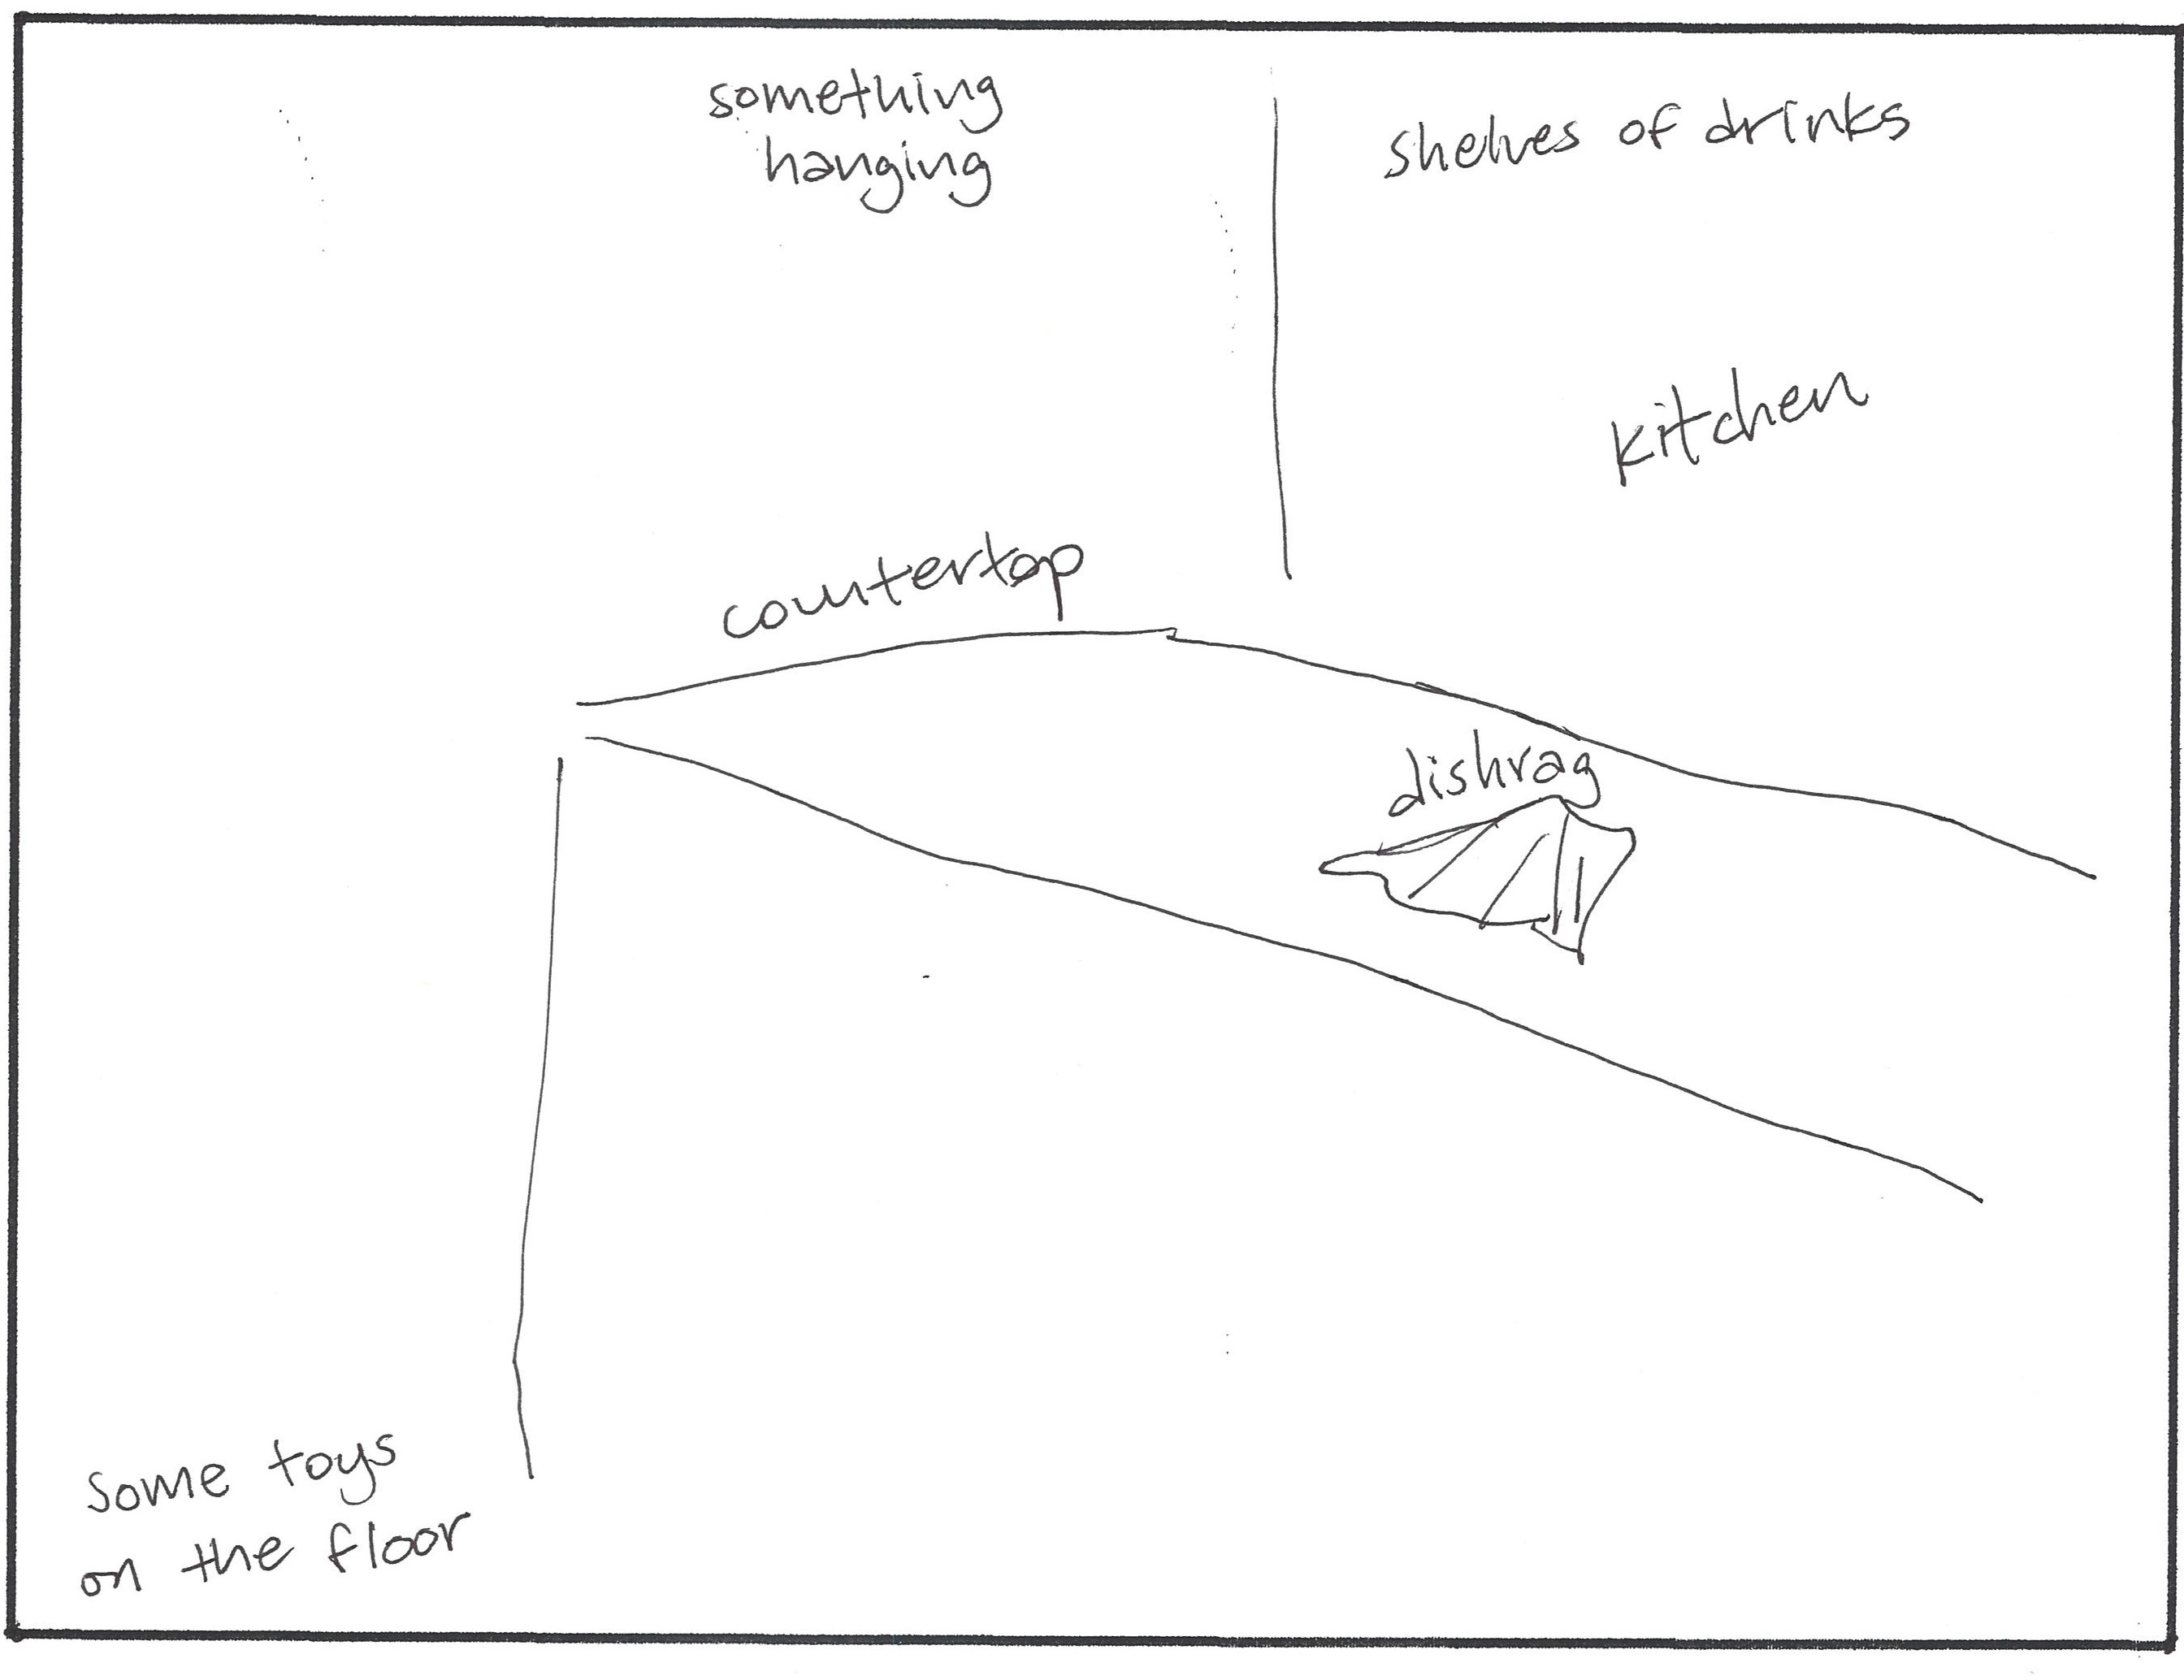 something
hanging
shelves of drinks
kitchen
countertop
dishrag
some toys
on the floor